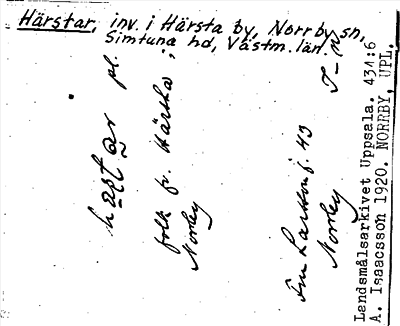 Härstar, inv. i Härsta by, Norrby sn,
Simtuna hd, Västm. län.
pl.
folk fr. Härsta i
Norrby
Fru Larsson f. 43
Norrby
Landsmålsarkivet Uppsala. 434:6
A. Isaacsson 1920. NORRBY, UPL.